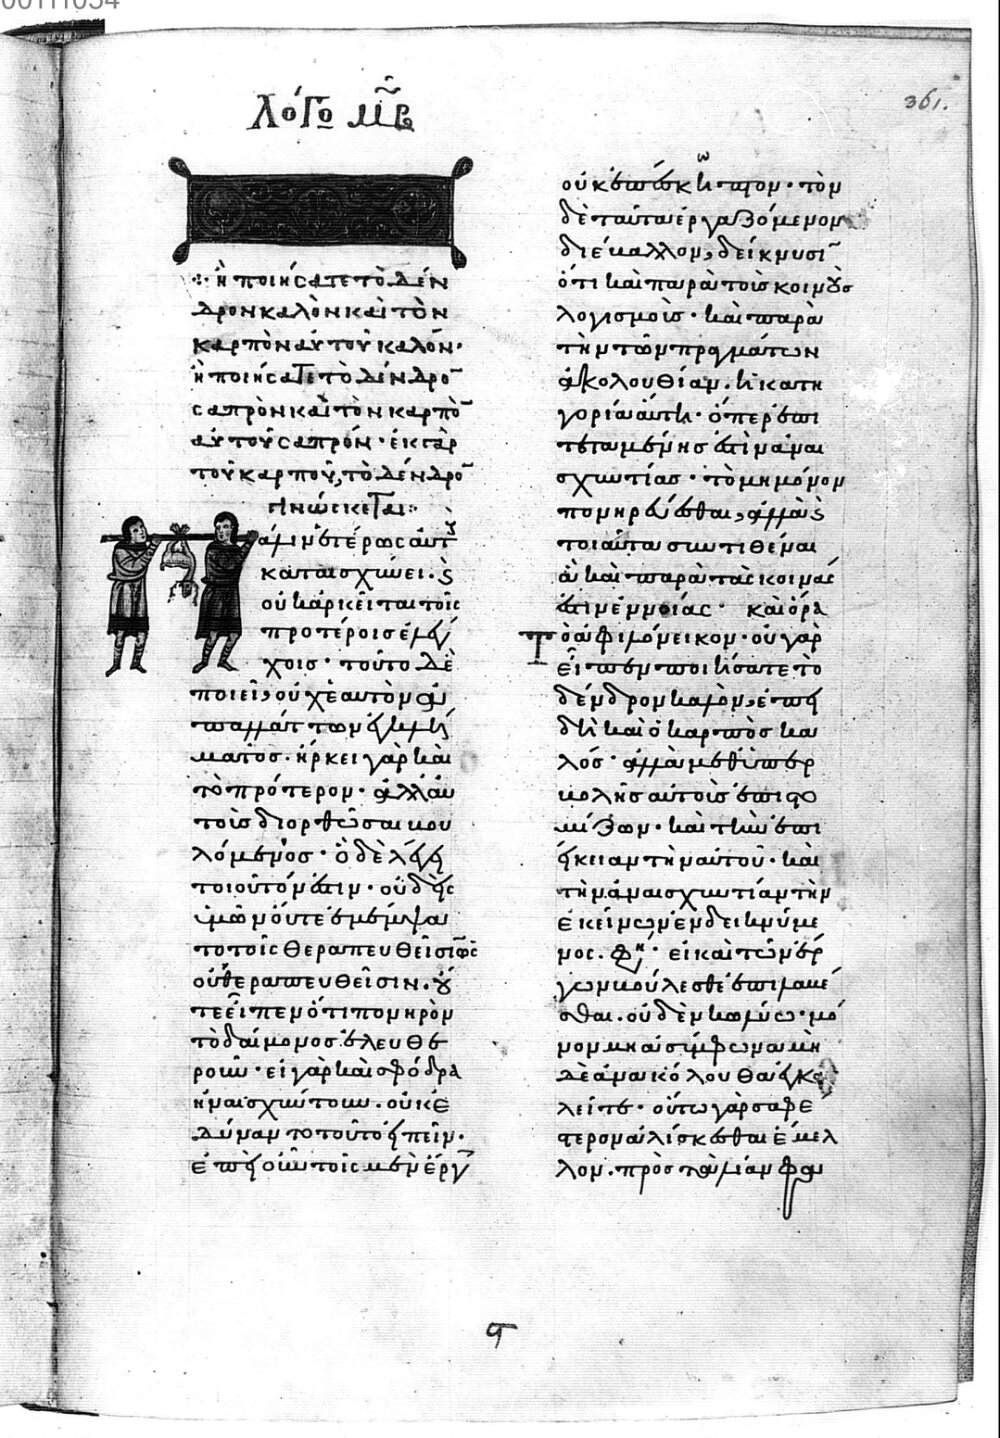 00111034
361.
Λόγο μ̅β̅
ἢ ποιήσατε τὸ δέν
δρον καλὸν καὶ τὸν
καρπὸν αὐτοῦ καλόν·
ἢ ποιήσατε τὸ δένδρο̅
σαπρὸν καὶ τὸν καρπὸ̅
αὐτοῦ σαπρόν· ἐκ γὰρ
τοῦ καρποῦ, τὸ δένδρο̅
γινώσκεται:
πάλιν ἑτέρως αὐτ
καταισχύνει· ϗ
οὐκ ἀρκεῖται τοῖς
προτέροις ἐλέγ
χοις· τοῦτο δὲ
ποιεῖ, οὐχ ἑαυτὸν ἀ
παλλάττων ἐγκλή
ματος· ἤρκει γὰρ καὶ
τὸ πρότερον· ἀλλ' αὐ
τοὺς διορθῶσαι βου
λόμενος· ὃ δὲ λέγει
τοιοῦτόν ἐστιν· οὐδεὶς
ὑμῶν οὔτε ἐμέμψα
το τοῖς θεραπευθεῖσιν ὡς
οὐ θεραπευθεῖσιν· οὔ
τε εἶπεν ὅτι πονηρὸν
τὸ δαίμονος ἐλευθε
ροῦν· εἰ γὰρ καὶ σφόδρα
ἠναισχύντουν· οὐκ ἐ
δύναντο τοῦτο εἰπεῖν·
ἐπεὶ οὖν τοῖς μὲν ἔργ
οὐκ ἐπέσκηπτον· τὸν
δὲ ταῦτα ἐργαζόμενον
διέβαλλον, δείκνυσι̅
ὅτι καὶ παρὰ τοὺς κοινοὺς
λογισμοὺς· καὶ παρὰ
τὴν τῶν πραγμάτων
ἀκολουθίαν· ἡ κατη
γορία αὕτη· ὅπερ ἐπι
τεταμένης ἐστὶν ἀναι
σχυντίας· τὸ μὴ μόνον
πονηρεύεσθαι, ἀλλὰ ϗ
τοιαῦτα συντιθέναι
ἃ καὶ παρὰ τὰς κοινάς
ἐστιν ἐννοίας· καὶ ὅρα
τὸ ἀφιλόνεικον· οὐ γὰρ
εἶπεν ποιήσατε τὸ
δένδρον καλὸν, ἐπει
δὴ καὶ ὁ καρπὸς κα
λός· ἀλλὰ μεθ' ὑπερ
βολῆς αὐτοὺς ἐπιστο
μίζων· καὶ τὴν ἐπι
είκειαν τὴν αὐτοῦ· καὶ
τὴν ἀναισχυντίαν τὴν
ἐκείνων ἐνδεικνύμε
νος. φη· εἰ καὶ τῶν ἔρ
γων βούλεσθε ἐπιλαβέ
σθαι· οὐδὲν κωλύω· μό
νον μὴ ἀσύμφωνα μη
δὲ ἀνακόλουθα ἐγκα
λεῖτε· οὕτω γὰρ σαφέ
στερον ἁλίσκεσθαι ἔμελ
λον· πρὸς τὰ λίαν φα